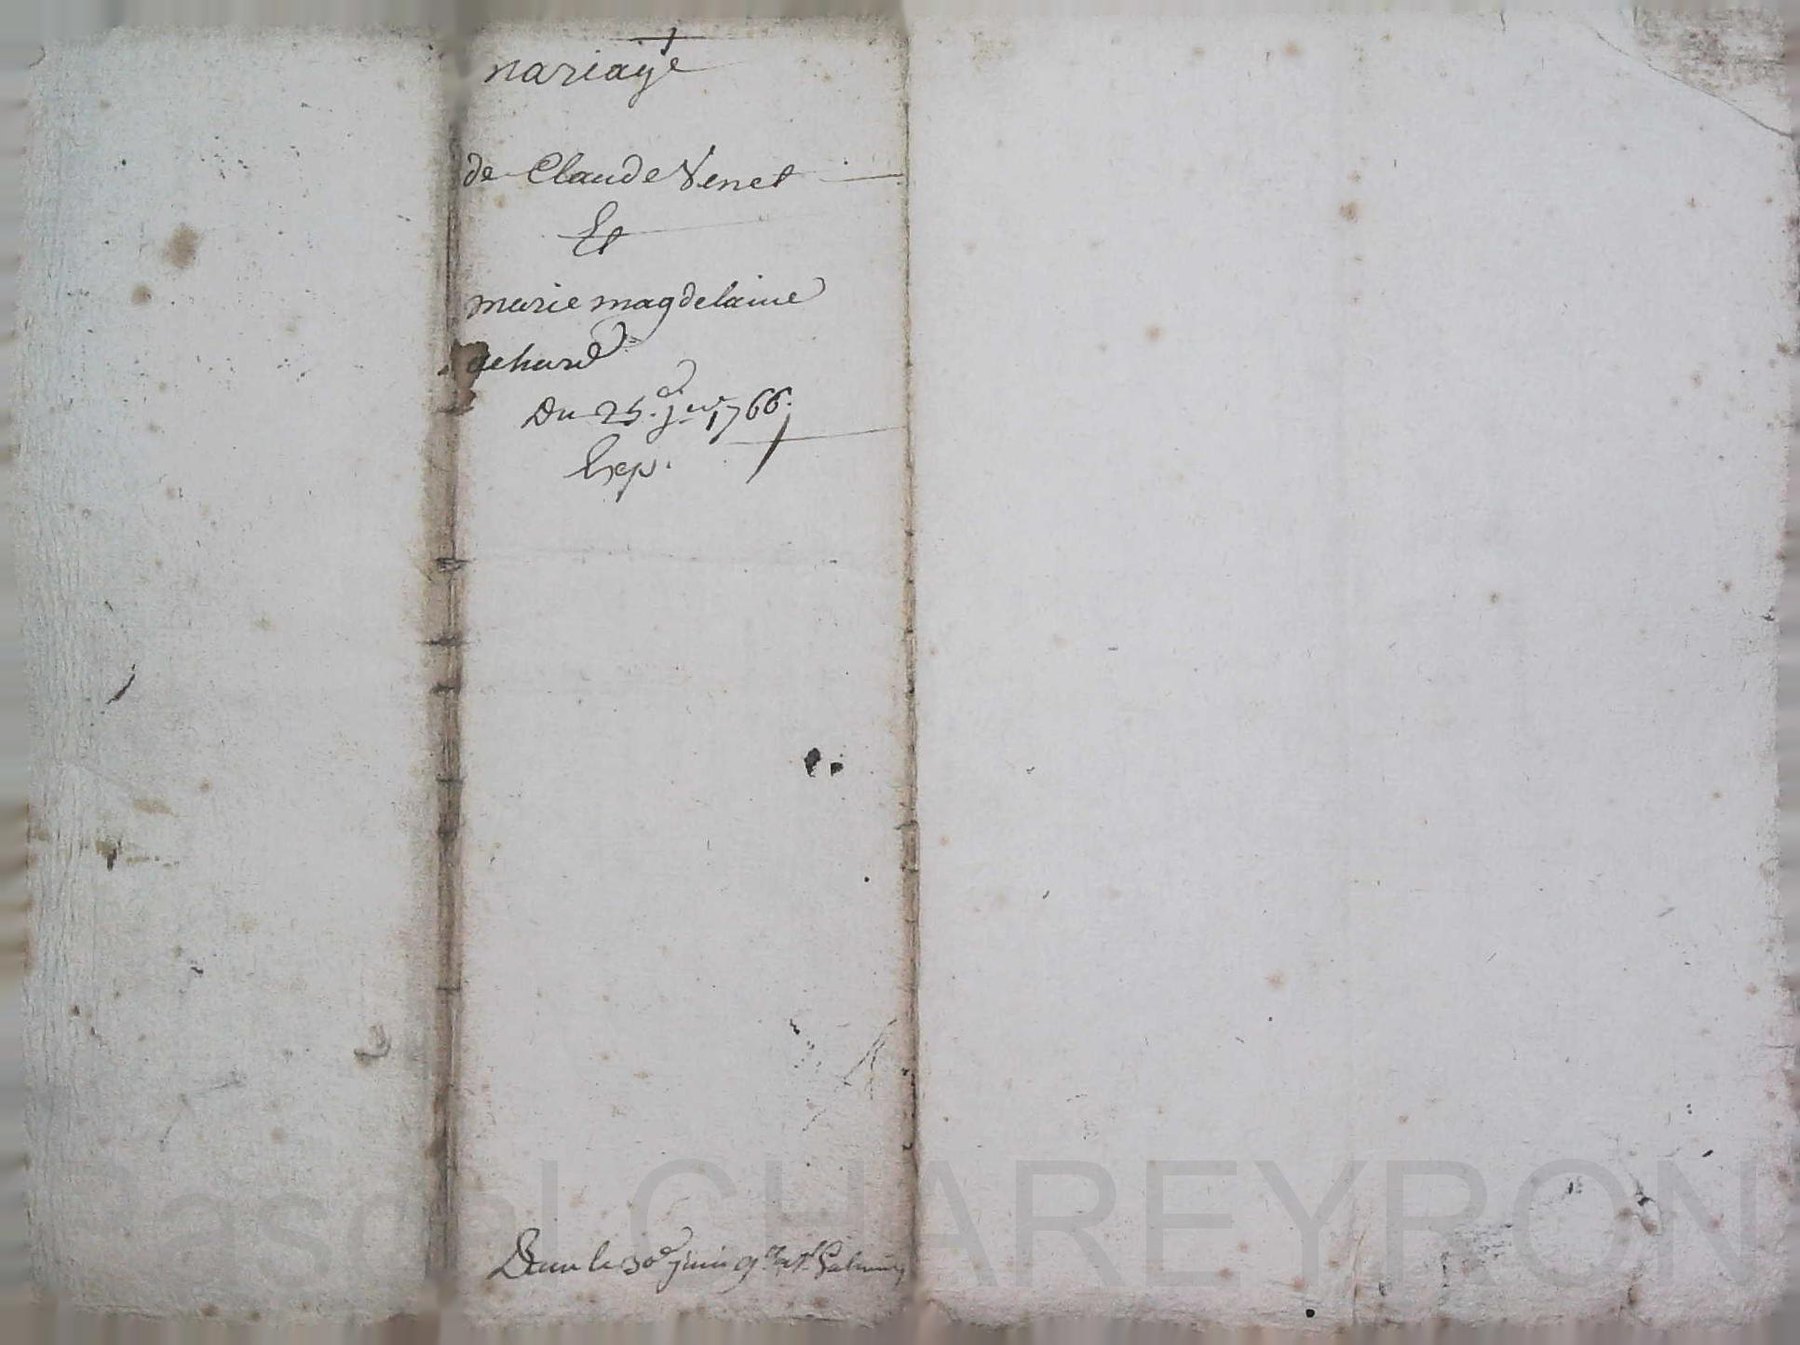 mariage
de Claude Venet
Et
marie magdelaine
achard
Du 25.e jer 1766.
Exp.
le 30e juin
Pascal CHAREYRON